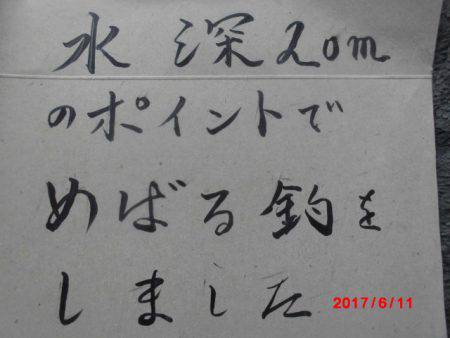 水深20m
のポイントで
めばる釣を
しました
2017/6/11